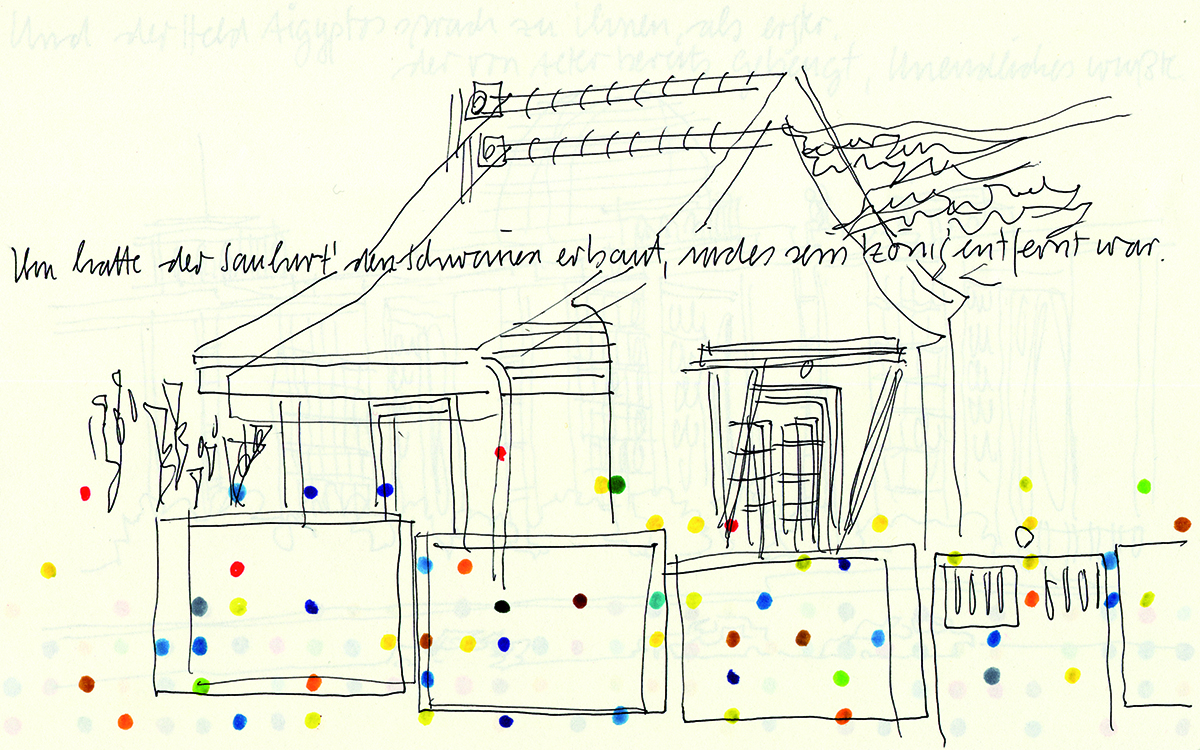 Und der Held Aigyptos sprach zu ihnen als erster,
der von Alter bereits gebeugt, Unendliches wußte
Ihn hatte der Sauhirt den Schweinen erbaut, indes sein König entfernt war.